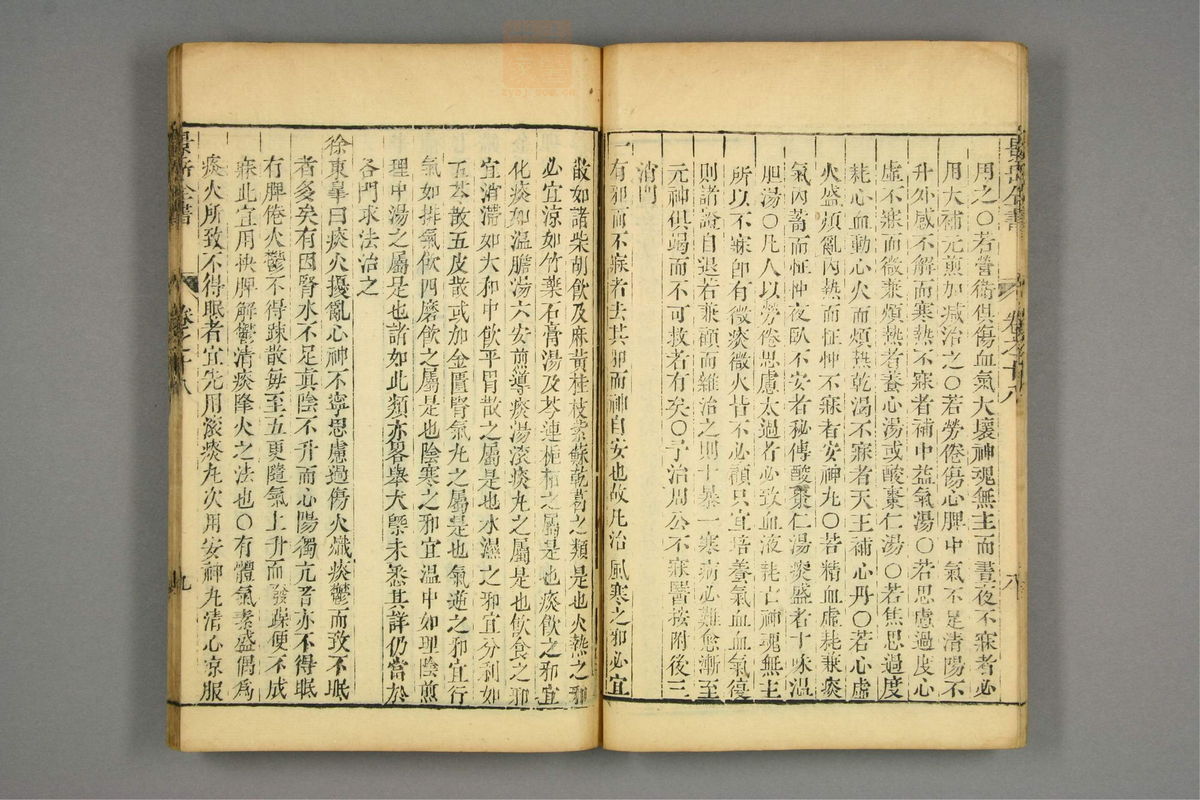 景岳全書 卷之十八 八
用之○若營衛俱傷血氣大壞神魂無主而晝夜不寐者必
用大補元煎加減治之○若勞倦傷心脾中氣不足清陽不
升外感不解而寒熱不寐者補中益氣湯○若思慮過度心
虛不寐而微兼煩熱者養心湯或酸棗仁湯○若焦思過度
耗心血動心火而煩熱乾渴不寐者天王補心丹○若心虛
火盛煩亂內熱而怔忡不寐者安神丸○若精血虛耗兼痰
氣內蓄而怔忡夜臥不安者秘傳酸棗仁湯痰盛者十味溫
胆湯○凡人以勞倦思慮太過者必致血液耗亡神魂無主
所以不寐卽有微痰微火皆不必顧只宜培養氣血血氣復
則諸證自退若兼顧而雜治之則十暴一寒病必難愈漸至
元神俱竭而不可救者有矣○予治周公不寐醫按附後三
消門
一有邪而不寐者去其邪而神自安也故凡治風寒之邪必宜
散如諸柴胡飲及麻黃桂枝紫蘇乾葛之類是也火熱之邪
必宜涼如竹葉石膏湯及芩連梔柏之屬是也痰飲之邪宜
化痰如溫膽湯六安煎導痰湯滾痰丸之屬是也飲食之邪
宜消滯如大和中飲平胃散之屬是也水濕之邪宜分利如
五苓散五皮散或加金匱腎氣丸之屬是也氣逆之邪宜行
氣如排氣飲四磨飲之屬是也陰寒之邪宜溫中如理陰煎
理中湯之屬是也諸如此類亦畧舉大槩未悉其詳仍當於
各門求法治之
徐東臯曰痰火擾亂心神不寧思慮過傷火熾痰鬱而致不眠
者多矣有因腎水不足眞陰不升而心陽獨亢者亦不得眠
有脾倦火鬱不得疎散每至五更隨氣上升而發躁便不成
寐此宜用快脾解鬱清痰降火之法也○有體氣素盛偶爲
痰火所致不得眠者宜先用滾痰丸次用安神丸清心凉服
景岳全書 卷之十八 九